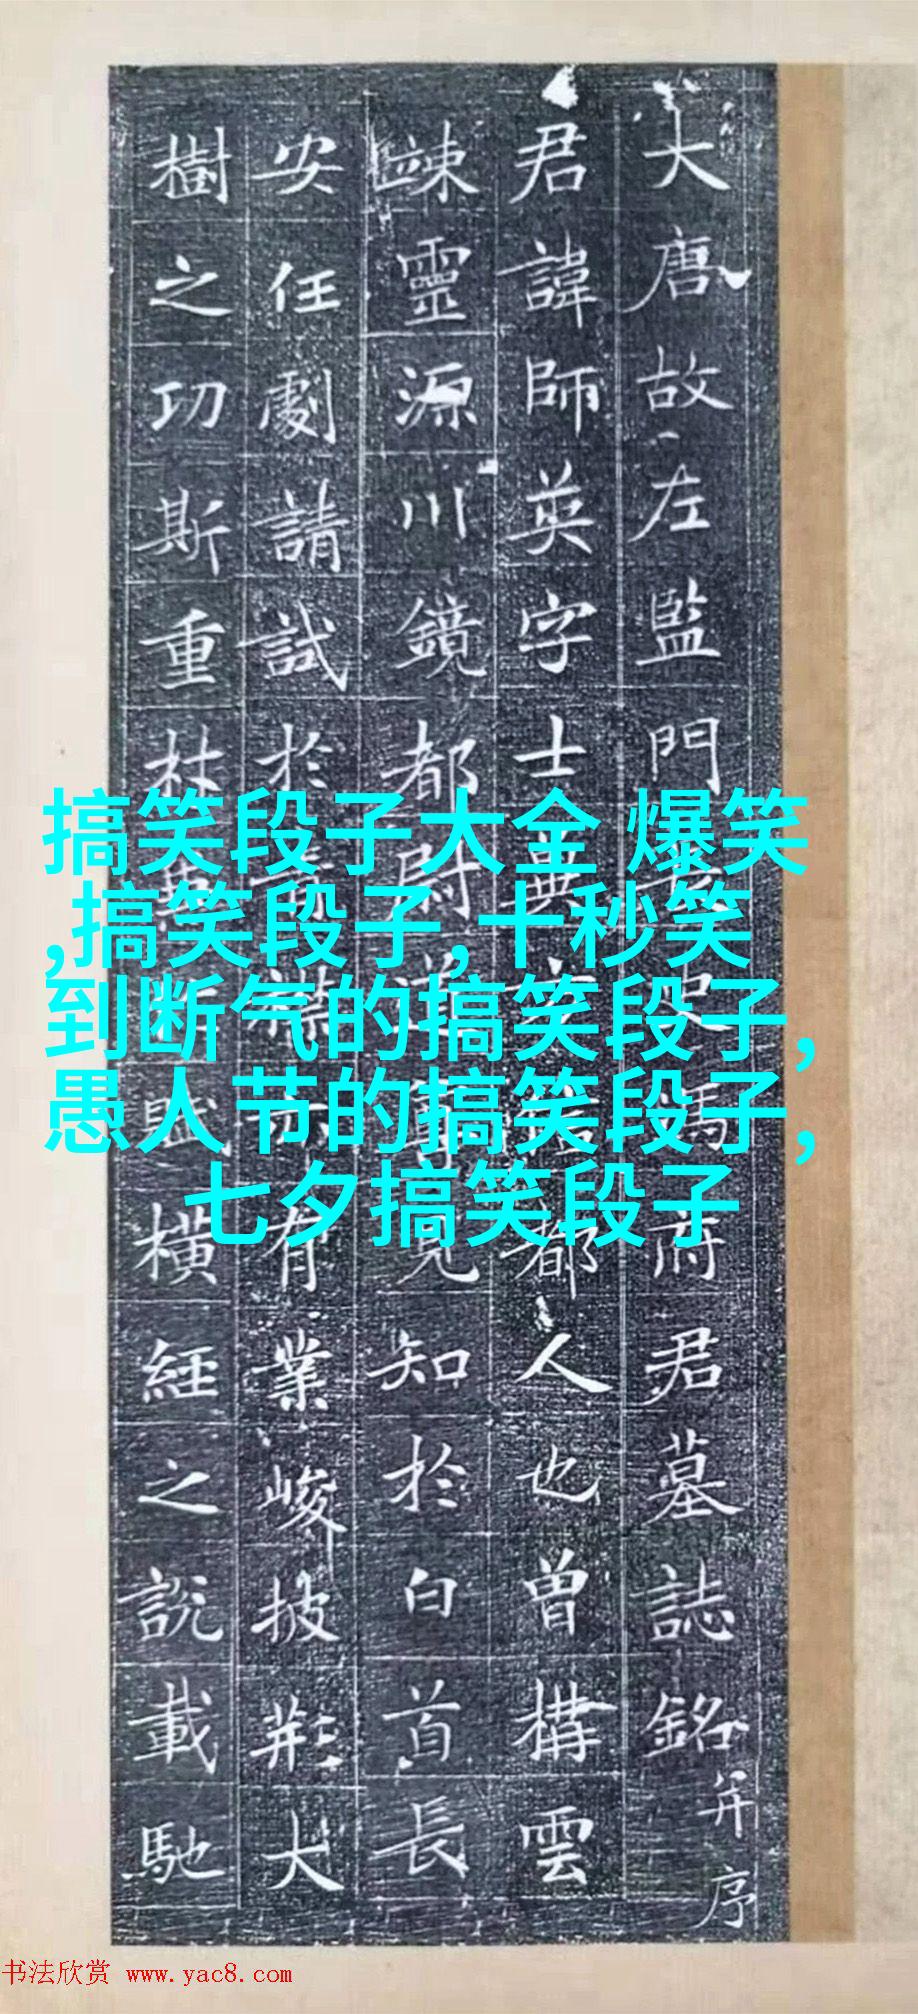 大唐故左監門長史馮府君墓誌銘并序
君諱師英字士都人也曽構雲
竦靈源川鏡都尉道見知於白首長
安任劇請試於有業峻披荊大
樹之功斯重杜賦橫經之說載馳
搞笑段子大全 爆笑
,搞笑段子,十秒笑
到断气的搞笑段子，
愚人节的搞笑段子，
七夕搞笑段子
书法欣赏 www.yac8.com